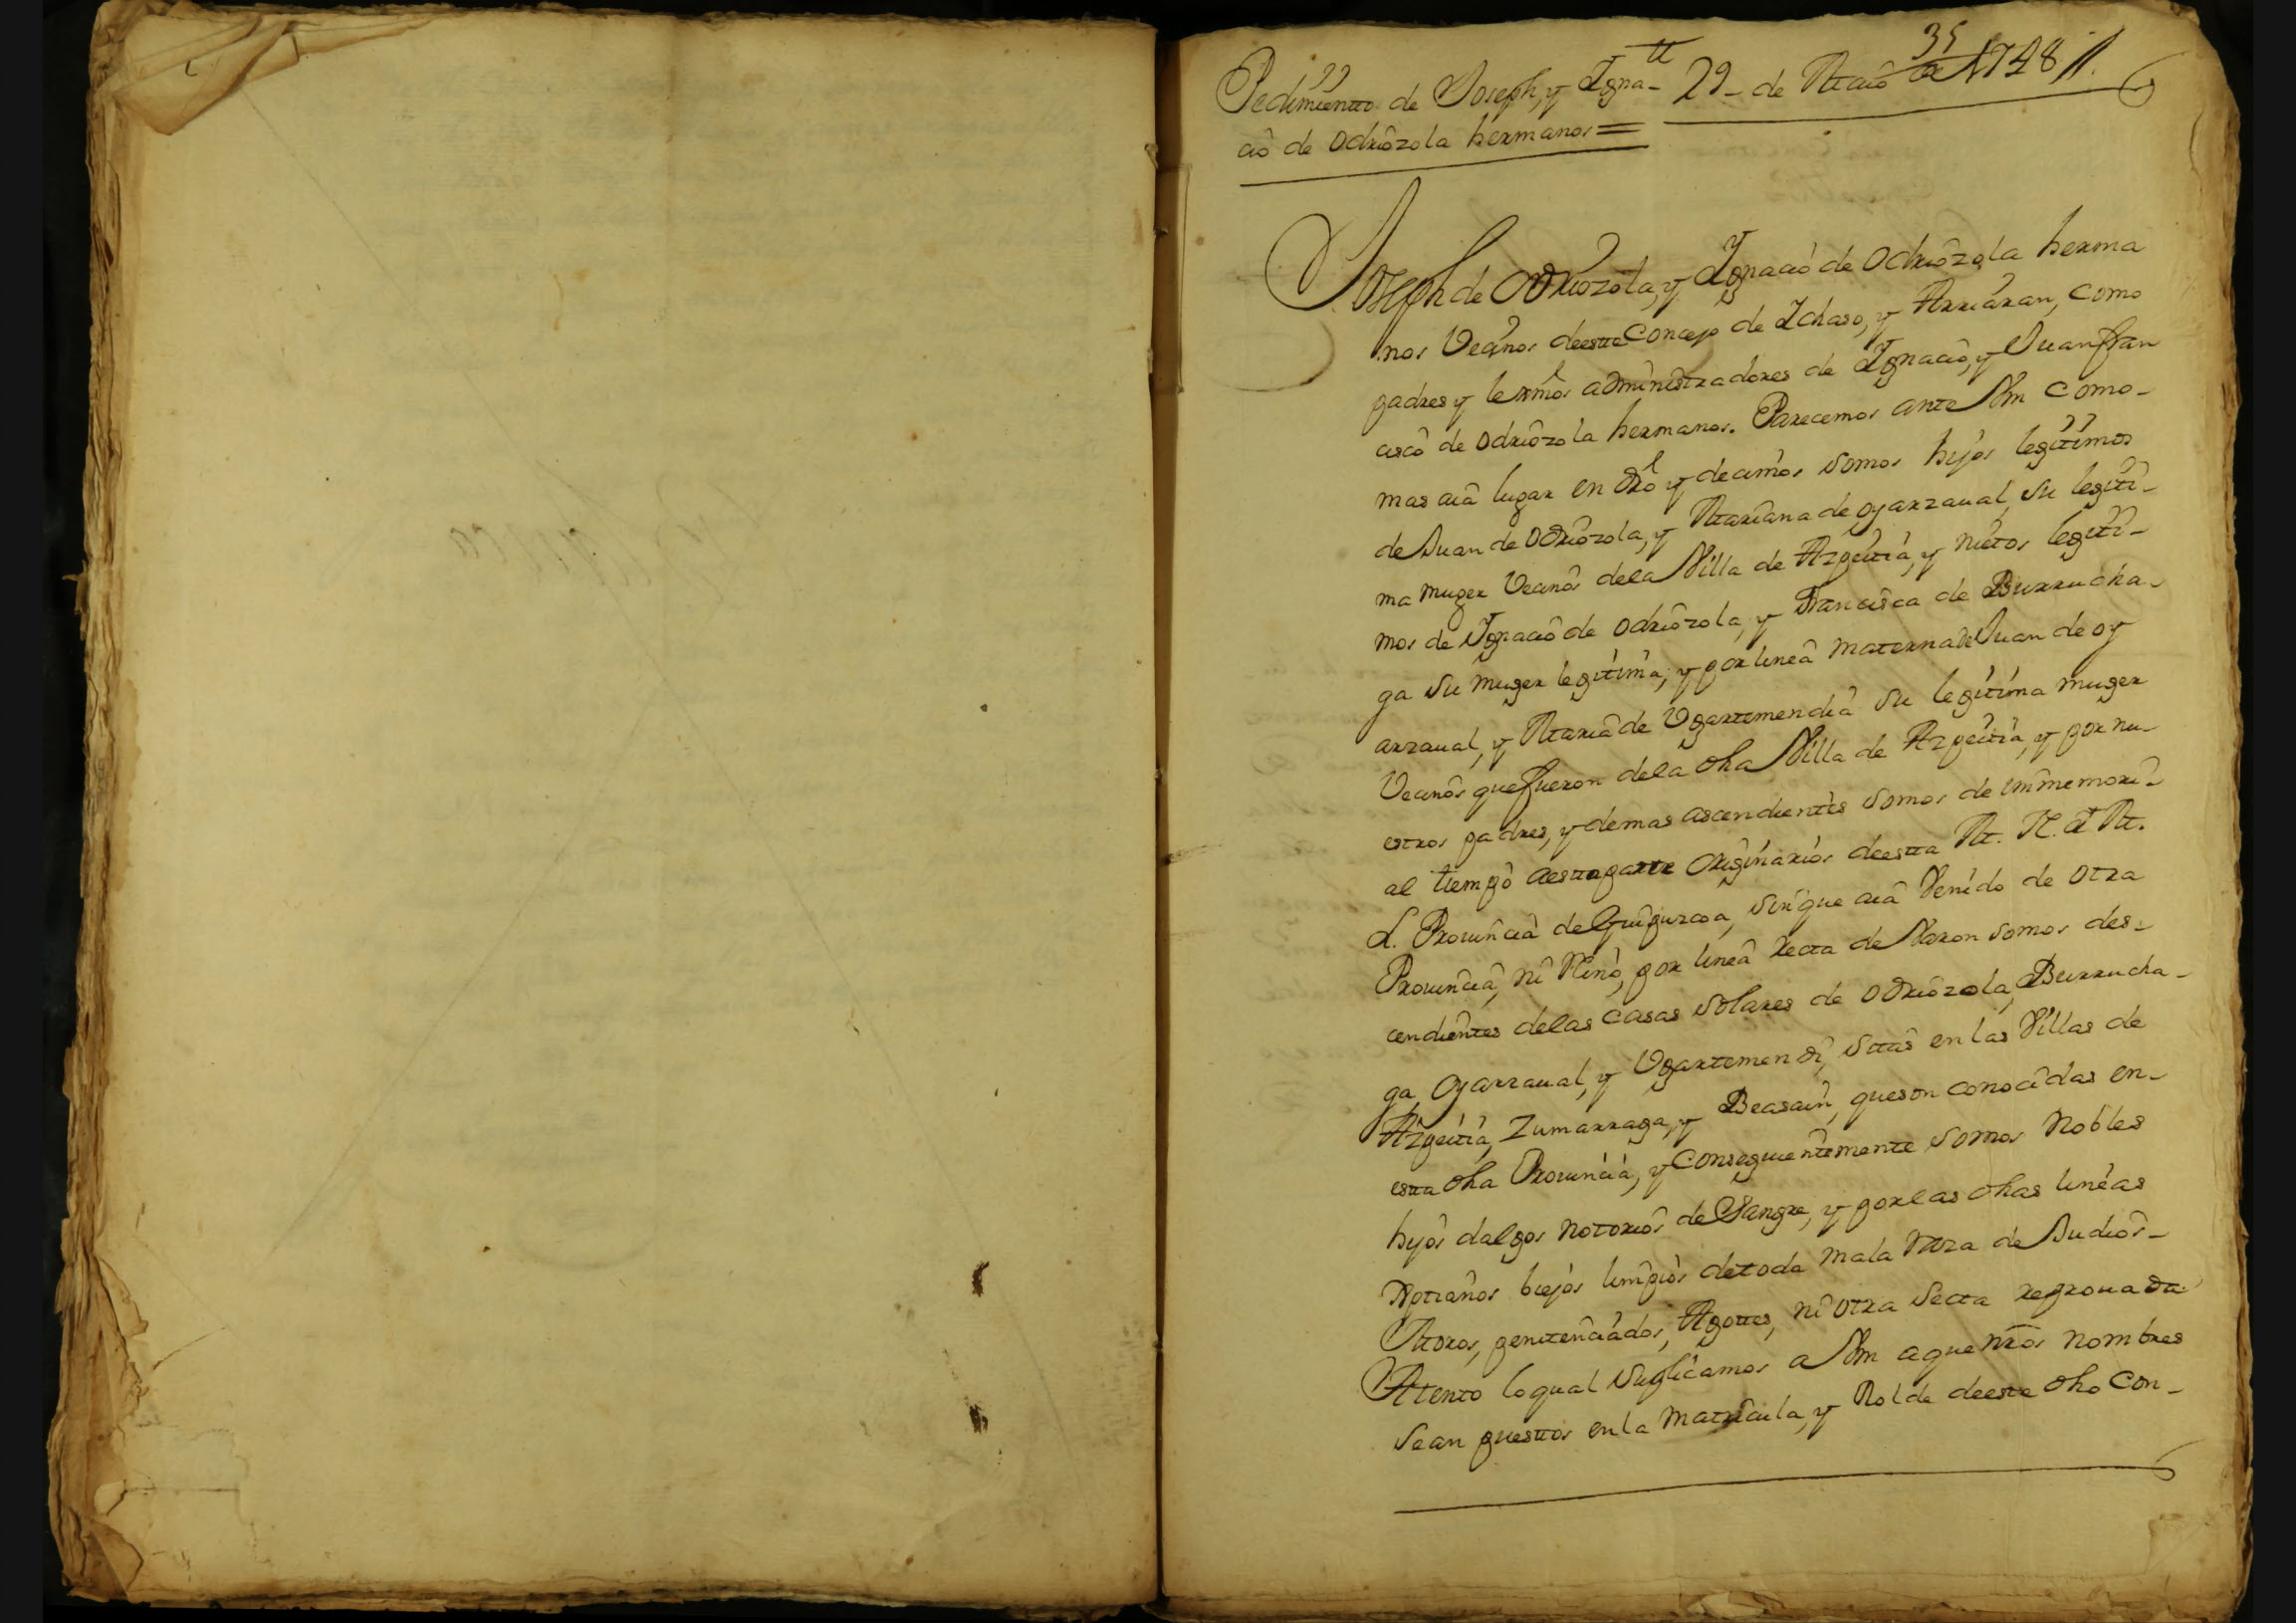 35
Pedimientto de Joseph, y Igna- 29- de Maio de 1748 //.
cio de Odriozola hermanos =
Joseph de Odriozola, y Ygnacio de Odriozola herma
nos Vecinos deeste Concejo de Ichaso, y Arriaran, como
padres y lexmos administradores de Ygnacio, y Juan fran
cisco de Odriozola hermanos. Parecemos ante Vm como-
mas aia lugar en dro y decimos somos hijos legitimos
de Juan de Odriozola, y Mariana de oyarzaual, su legiti-
ma muger Vecinos dela Villa de Azpeitia, y nietos legiti-
mos de Ygnacio de odriozola, y Francisca de Burrucha-
ga su muger legitima, y por linea materna de Juan de oy
arzaual, y Maria de Vgartemendia su legitima muger
Vecinos que fueron dela dha Villa de Azpeitia, y por nu-
estros padres, y demas ascendientes somos de immemori-
al tiempo aestaparte originarios deesta M. N. Y M.
L. Prouincia de Guipuzcoa, sin que aia Venido de otra
Prouincia, ni Reino, por linea recta de Varon somos des-
cendientes delas casas solares de Odriozola, Burrucha-
ga, Oyarzaual, y Vgartemendi, sitas en las Villas de
Azpeitia, Zumarraga, y Beasain, queson conocidas en-
esta dha Prouincia, y Consequentemente somos Nobles
hijos dalgos notorios de Sangre, y por las dhas lineas
Xptianos biejos limpios detoda mala raza de Judios-
Moros, penitenciados, Agotes, ni otra secta reprouada
Atento loqual suplicamos a Vm aque nros nombres
sean puesttos enla Matricula, y Rolde deeste dho Con-